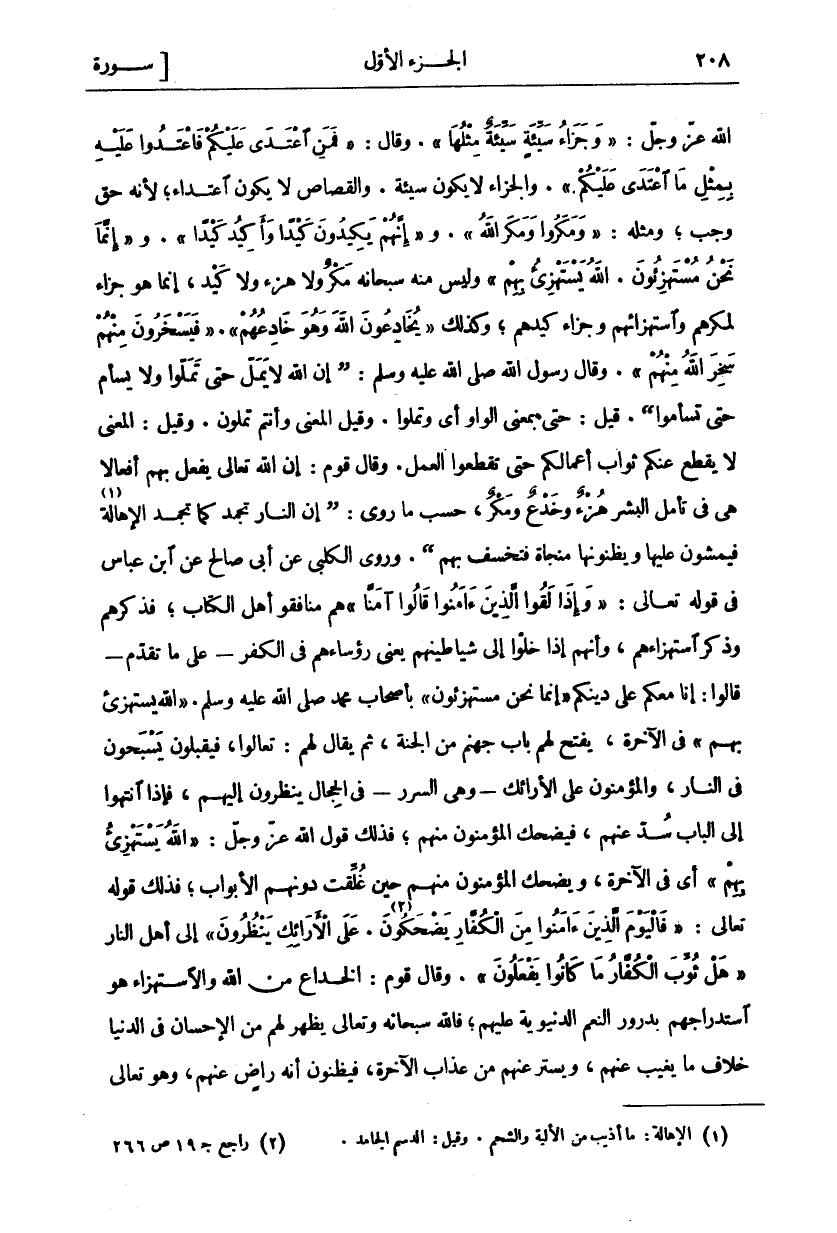 ٢٠٨ الجـزء الأوّل [ ســورة
الله عزّ وجلّ : « وَجَزَاءُ سَيِّئَةٍ سَيِّئَةٌ مِثْلُهَا » . وقال : « فَمَنِ ٱعْتَـدَى عَلَيْكُمْ فَاعْتَـدُوا عَلَيْـهِ
بِمِثْلِ مَا ٱعْتَدَى عَلَيْكُمْ » . والجزاء لايكون سيئة . والقصاص لا يكون ٱعتـداء؛ لأنه حق
وجب ؛ ومثله : « وَمَكَرُوا وَمَكَرَ اللهُ » . و « إِنَّهُمْ يَكِيدُونَ كَيْدًا وَأَكِيدُ كَيْدًا » . و « إِنَّمَا
نَحْنُ مُسْتَهْزِئُونَ . اللهُ يَسْتَهْزِئُ بِهِمْ » وليس منه سبحانه مَكْرٌ ولا هزء ولا كَيْد ، إنما هو جزاء
لمكرهم وٱستهزائهم وجزاء كيدهم ؛ وكذلك « يُخَادِعُونَ اللهَ وَهُوَ خَادِعُهُمْ ». « فَيَسْخَرُونَ مِنْهُمْ
سَخِرَ اللهُ مِنْهُمْ » . وقال رسول الله صلى الله عليه وسلم : ” إن الله لايَمَلّ حتى تَمَلّوا ولا يسأم
حتى تسأموا “ . قيل : حتى بمعنى الواو أى وتملوا . وقيل المعنى وأنتم تملون . وقيل : المعنى
لا يقطع عنكم ثواب أعمالكم حتى تقطعوا العمل . وقال قوم : إن الله تعالى يفعل بهم أفعالا
هى فى تأمل البشر هُزْءٌ وخَدْعٌ ومَكْرٌ ، حسب ما روى : ” إن النار تجمد كما تجمد الإهالة (١)
فيمشون عليها ويظنونها منجاة فتخسف بهم “ . وروى الكلبى عن أبى صالح عن ٱبن عباس
فى قوله تعـالى : « وَإِذَا لَقُوا الَّذِينَ ءَامَنُوا قَالُوا آمَنَّا » هم منافقو أهل الكتاب ؛ فذكرهم
وذكر ٱستهزاءهم ، وأنهم إذا خلَوْا إلى شياطينهم يعنى رؤساءهم فى الكفر — على ما تقدّم —
قالوا : إنا معكم على دينكم «إنما نحن مستهزئون» بأصحاب محمد صلى الله عليه وسلم . «الله يستهزئ
بهـم » فى الآخرة ، يفتح لهم باب جهنم من الجنة ، ثم يقال لهم : تعالوا ، فيقبلون يَسْبَحون
فى النـار ، والمؤمنون على الأرائك — وهى السرر — فى الحِجال ينظرون إليهـم ، فإذا ٱنتهوا
إلى الباب سُـدّ عنهم ، فيضحك المؤمنون منهم ؛ فذلك قول الله عزّ وجلّ : « اللهُ يَسْتَهْزِئُ
بِهِمْ » أى فى الآخرة ، ويضحك المؤمنون منهـم حين غُلِّقت دونهـم الأبواب ؛ فذلك قوله
تعالى : « فَالْيَوْمَ الَّذِينَ ءَامَنُوا مِنَ الْكُفَّارِ يَضْحَكُونَ (٢) . عَلَى الْأَرَائِكِ يَنْظُرُونَ » إلى أهل النار
« هَلْ ثُوِّبَ الْكُفَّارُ مَا كَانُوا يَفْعَلُونَ » . وقال قوم : الخداع من الله والاستهزاء هو
ٱستدراجهم بدرور النعم الدنيوية عليهم ؛ فالله سبحانه وتعالى يظهر لهم من الإحسان فى الدنيا
خلاف ما يغيب عنهم ، ويستر عنهم من عذاب الآخرة ، فيظنون أنه راضٍ عنهم ، وهو تعالى
(١) الإهالة : ما أذيب من الألية والشحم . وقيل : الدسم الجامد . (٢) راجع جـ ١٩ ص ٢٦٦